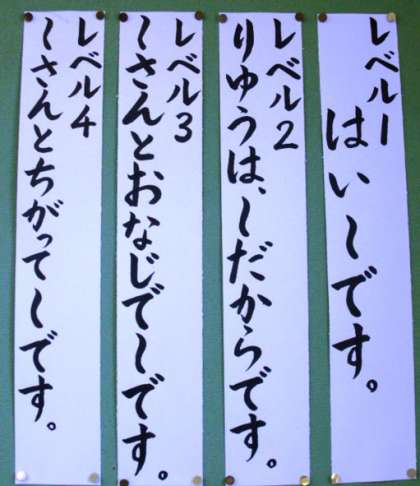 レベル1
はい〜です。
レベル2
りゆうは、〜だからです。
レベル3
〜さんとおなじで〜です。
レベル4
〜さんとちがって〜です。